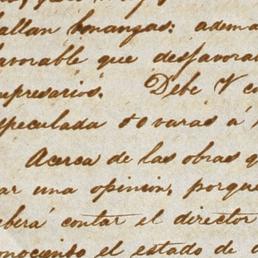 allan bonanzas: adema
favorable que desfavora
mpresarios. Debe V co
speculada 50 varas á
Acerca de las obras q
ar una opinin, porque
eberá contar el director
onociento el estado de